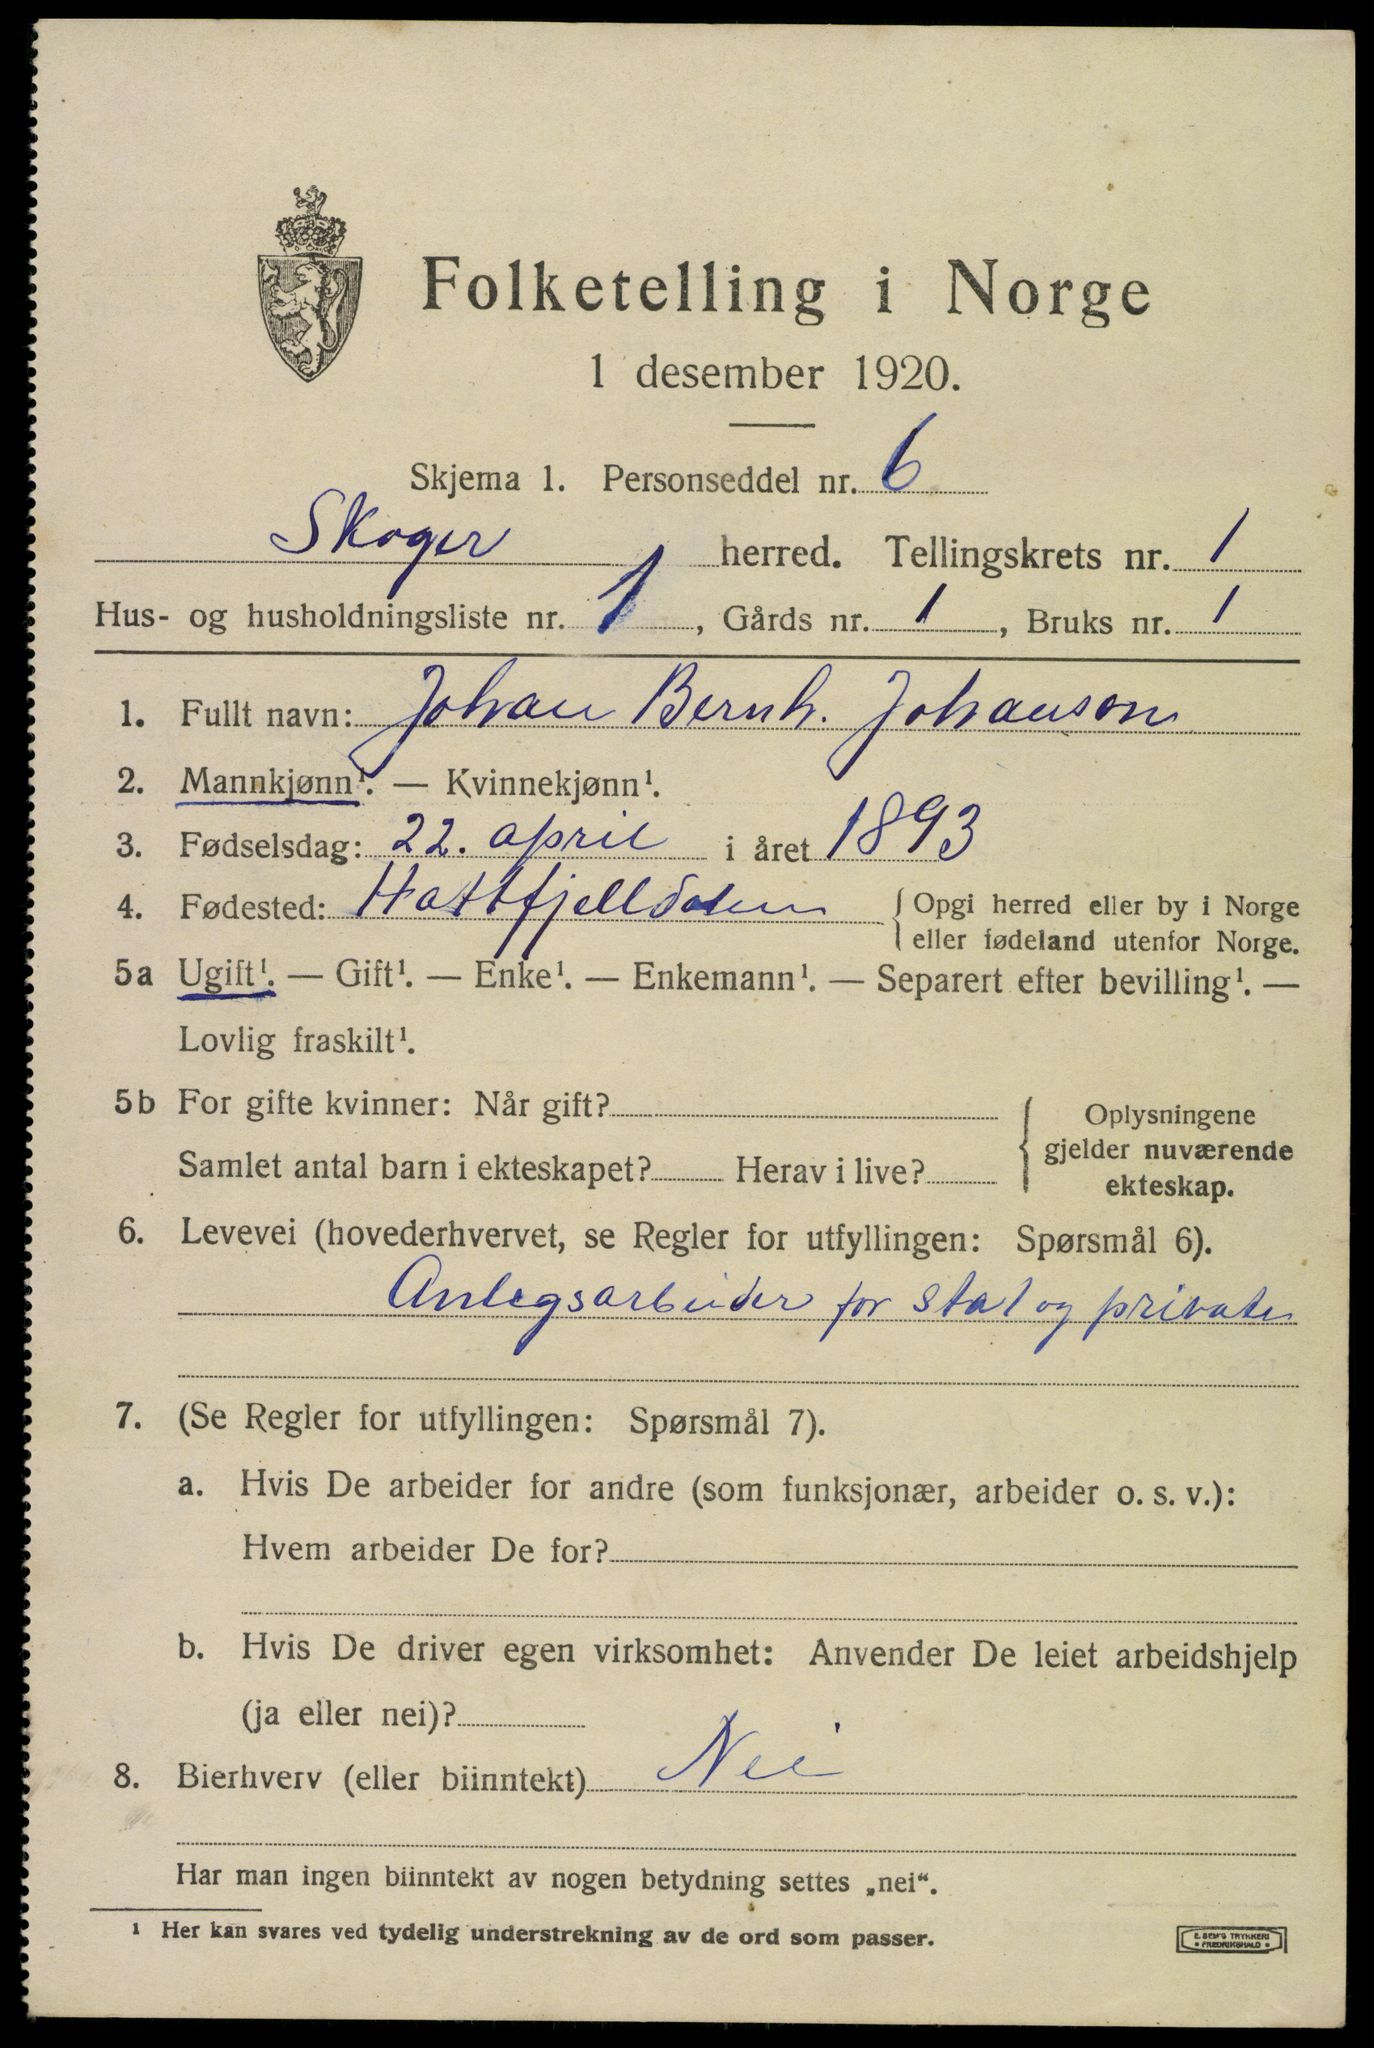 Folketelling i Norge
1 desember 1920.
Skjema 1. Personseddel nr. 6
Skoger herred. Tellingskrets nr. 1
Hus- og husholdningsliste nr. 1, Gårds nr. 1, Bruks nr. 1
1. Fullt navn: Johan Bernh. Johanson
2. Mannkjønn¹. — Kvinnekjønn¹.
3. Fødselsdag: 22. april i året 1893
4. Fødested: Hattfjelldalen { Opgi herred eller by i Norge
eller fødeland utenfor Norge.
5a Ugift¹. — Gift¹. — Enke¹. — Enkemann¹. — Separert efter bevilling¹. —
Lovlig fraskilt¹.
5b For gifte kvinner: Når gift?
Samlet antal barn i ekteskapet? Herav i live?
{ Oplysningene
gjelder nuværende
ekteskap.
6. Levevei (hovederhvervet, se Regler for utfyllingen: Spørsmål 6).
Anlegsarbeider for stat og private
7. (Se Regler for utfyllingen: Spørsmål 7).
a. Hvis De arbeider for andre (som funksjonær, arbeider o. s. v.):
Hvem arbeider De for?
b. Hvis De driver egen virksomhet: Anvender De leiet arbeidshjelp
(ja eller nei)?
8. Bierhverv (eller biinntekt) Nei
Har man ingen biinntekt av nogen betydning settes „nei“.
¹ Her kan svares ved tydelig understrekning av de ord som passer.
E. SEM'S TRYKKERI
• FREDRIKSHALD •